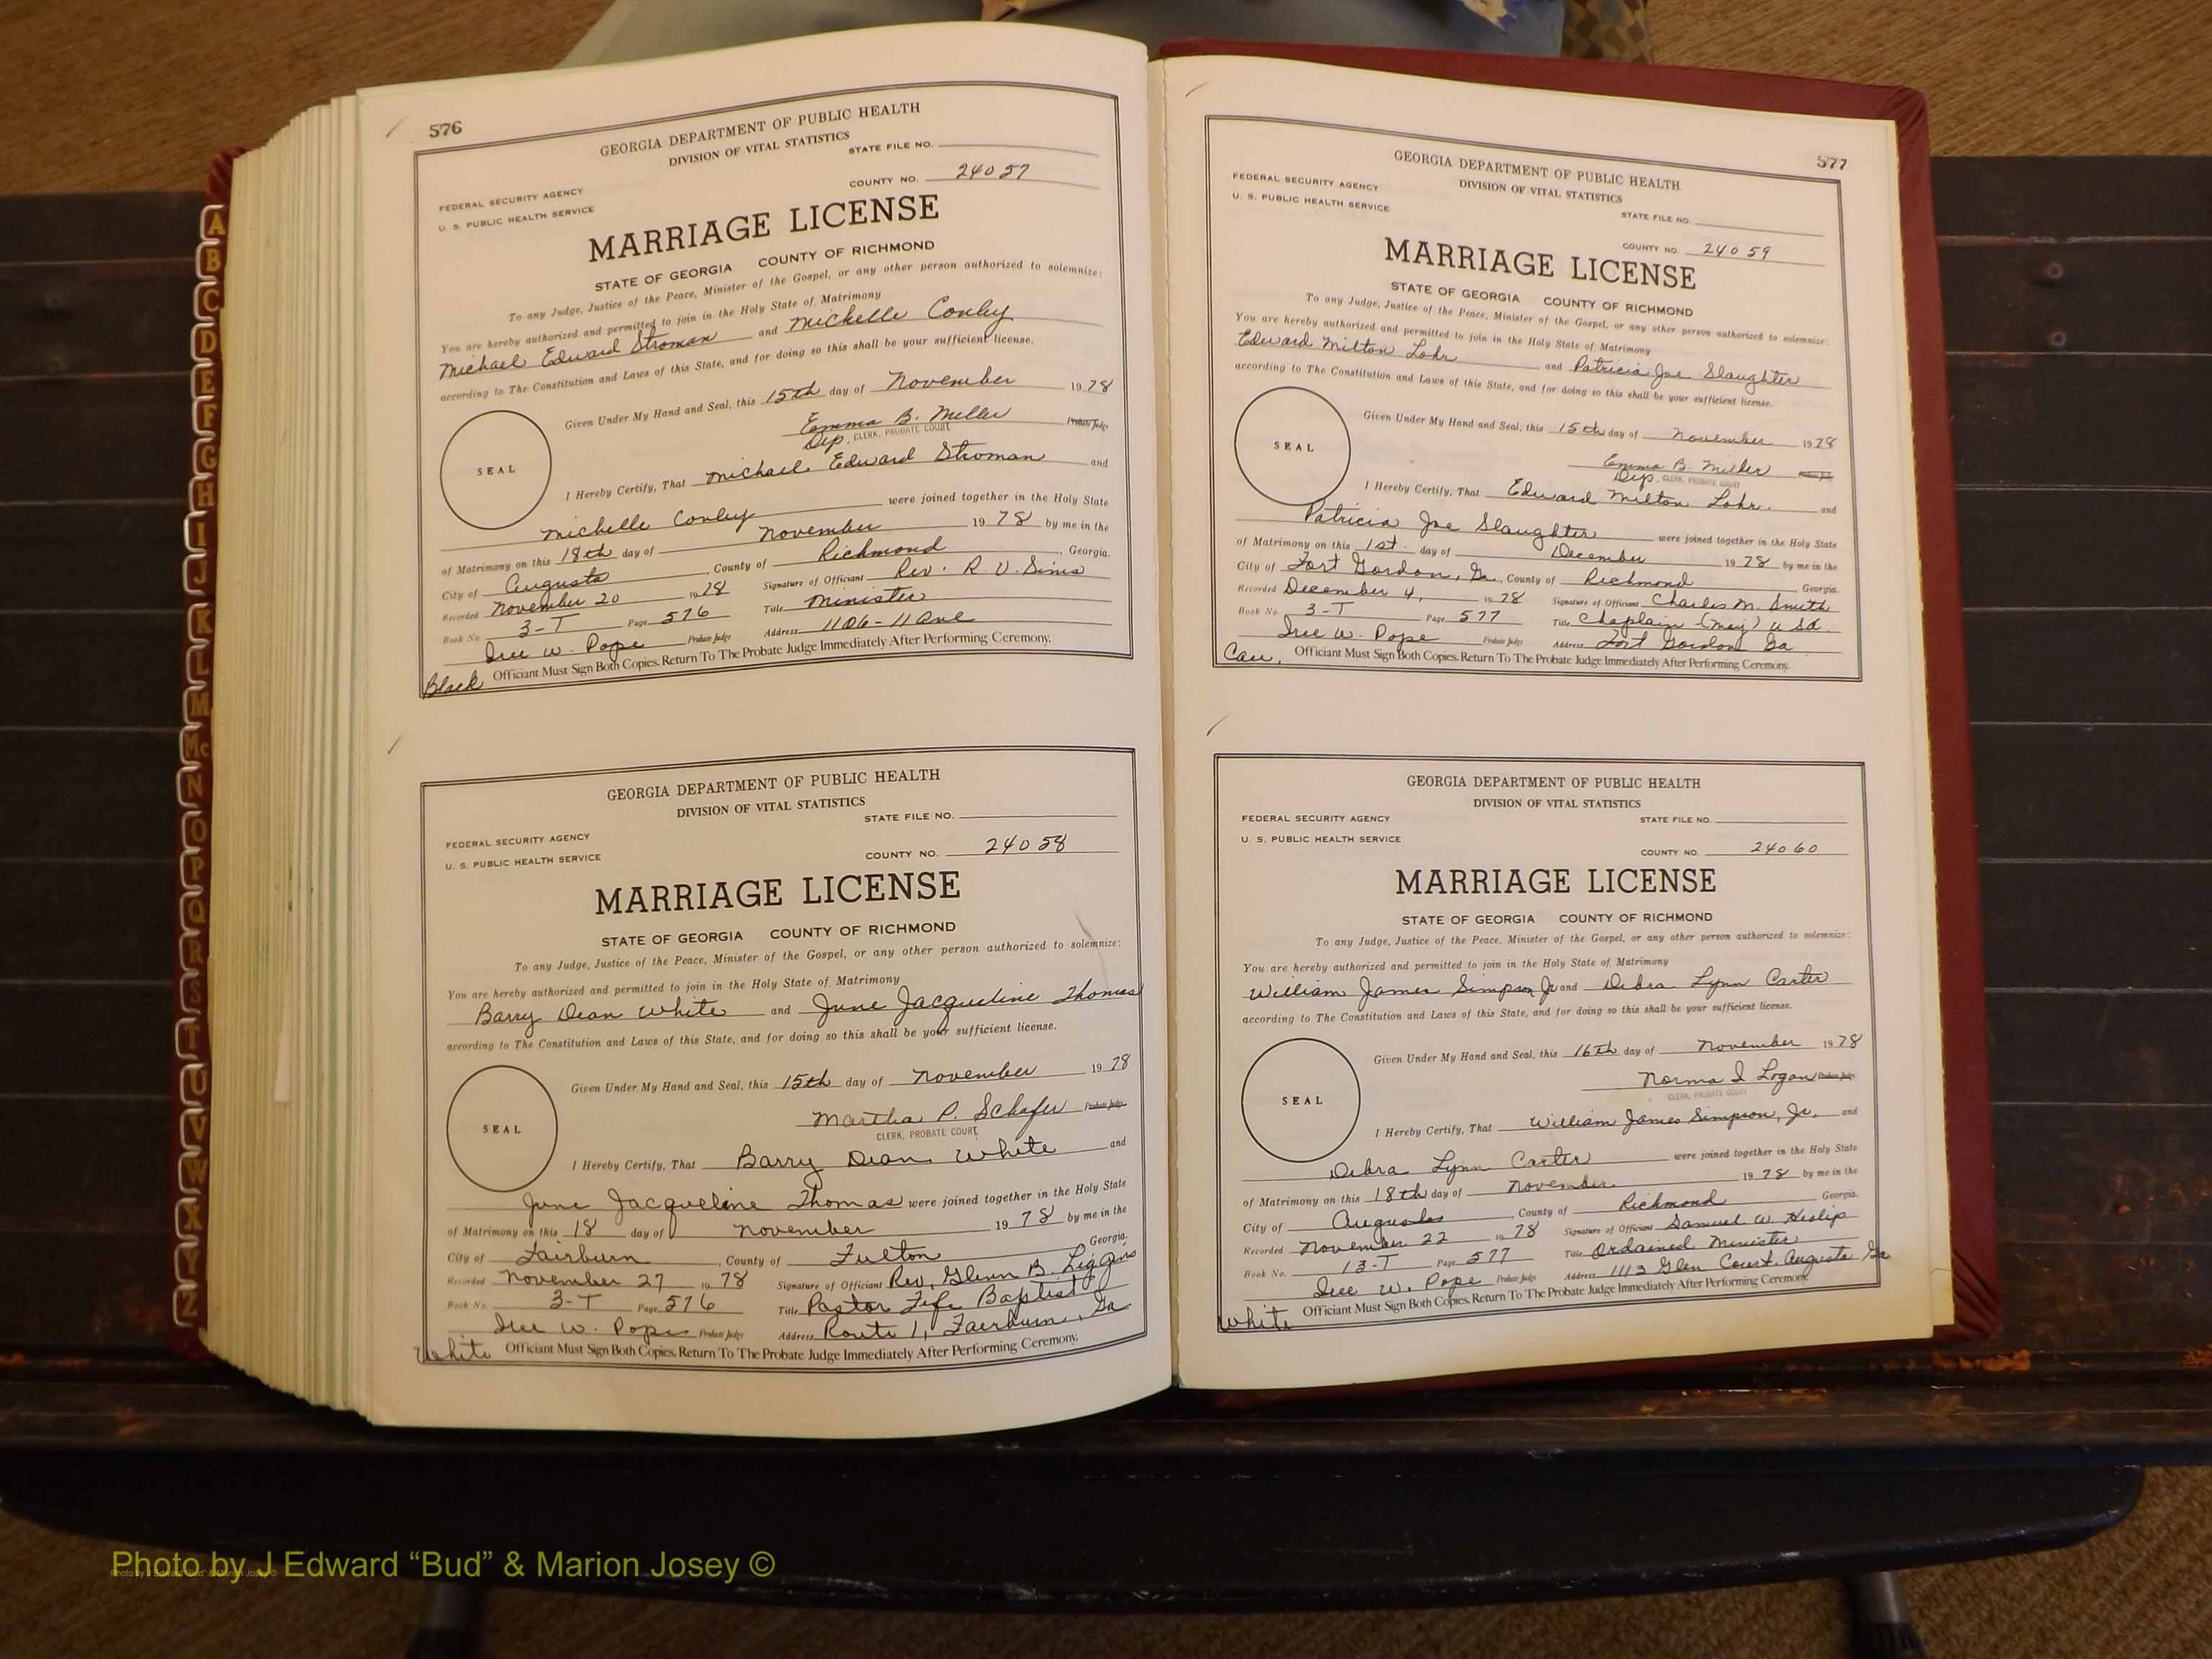 576
GEORGIA DEPARTMENT OF PUBLIC HEALTH
DIVISION OF VITAL STATISTICS
STATE FILE NO.
FEDERAL SECURITY AGENCY
COUNTY NO. 24057
U. S. PUBLIC HEALTH SERVICE
MARRIAGE LICENSE
STATE OF GEORGIA COUNTY OF RICHMOND
To any Judge, Justice of the Peace, Minister of the Gospel, or any other person authorized to solemnize:
You are hereby authorized and permitted to join in the Holy State of Matrimony
Michael Edward Stroman and Michelle Conley
according to The Constitution and Laws of this State, and for doing so this shall be your sufficient license.
Given Under My Hand and Seal, this 15th day of November 1978
Emma B. Miller Probate Judge
Dep. CLERK, PROBATE COURT
SEAL
I Hereby Certify, That Michael Edward Stroman and
Michelle Conley were joined together in the Holy State
of Matrimony on this 18th day of November 1978 by me in the
City of Augusta, County of Richmond, Georgia.
Recorded November 20 1978 Signature of Officiant Rev. R. V. Sims
Book No. 3-T Page 576 Title Minister
W. Pope Probate Judge Address 1106-11 Ave
Black Officiant Must Sign Both Copies. Return To The Probate Judge Immediately After Performing Ceremony.
GEORGIA DEPARTMENT OF PUBLIC HEALTH
DIVISION OF VITAL STATISTICS
STATE FILE NO.
FEDERAL SECURITY AGENCY
COUNTY NO. 24058
U. S. PUBLIC HEALTH SERVICE
MARRIAGE LICENSE
STATE OF GEORGIA COUNTY OF RICHMOND
To any Judge, Justice of the Peace, Minister of the Gospel, or any other person authorized to solemnize:
You are hereby authorized and permitted to join in the Holy State of Matrimony
Barry Dean White and June Jacqueline Thomas
according to The Constitution and Laws of this State, and for doing so this shall be your sufficient license.
Given Under My Hand and Seal, this 15th day of November 1978
Martha P. Schafer Probate Judge
CLERK, PROBATE COURT
SEAL
I Hereby Certify, That Barry Dean White and
June Jacqueline Thomas were joined together in the Holy State
of Matrimony on this 18 day of November 1978 by me in the
City of Fairburn, County of Fulton Georgia.
Recorded November 27 1978 Signature of Officiant Rev. Glenn B. Liggins
Book No. 3-T Page 576 Title Pastor Fife Baptist
W. Pope Probate Judge Address Route 1, Fairburn, Ga
White Officiant Must Sign Both Copies. Return To The Probate Judge Immediately After Performing Ceremony.
577
GEORGIA DEPARTMENT OF PUBLIC HEALTH
DIVISION OF VITAL STATISTICS
FEDERAL SECURITY AGENCY
U. S. PUBLIC HEALTH SERVICE
STATE FILE NO.
COUNTY NO. 24059
MARRIAGE LICENSE
STATE OF GEORGIA COUNTY OF RICHMOND
To any Judge, Justice of the Peace, Minister of the Gospel, or any other person authorized to solemnize:
You are hereby authorized and permitted to join in the Holy State of Matrimony
Edward Milton Lohr and Patricia Joe Slaughter
according to The Constitution and Laws of this State, and for doing so this shall be your sufficient license.
Given Under My Hand and Seal, this 15th day of November 1978
Emma B. Miller
Dep. CLERK, PROBATE COURT
SEAL
I Hereby Certify, That Edward Milton Lohr. and
Patricia Joe Slaughter were joined together in the Holy State
of Matrimony on this 1st. day of December 1978 by me in the
City of Fort Gordon, Ga., County of Richmond Georgia.
Recorded December 4, 1978 Signature of Officiant Charles M. Smith
Book No. 3-T Page 577 Title Chaplain (Maj)
W. Pope Probate Judge Address Fort Gordon Ga
Cau. Officiant Must Sign Both Copies. Return To The Probate Judge Immediately After Performing Ceremony.
GEORGIA DEPARTMENT OF PUBLIC HEALTH
DIVISION OF VITAL STATISTICS
FEDERAL SECURITY AGENCY STATE FILE NO.
U. S. PUBLIC HEALTH SERVICE
COUNTY NO. 24060
MARRIAGE LICENSE
STATE OF GEORGIA COUNTY OF RICHMOND
To any Judge, Justice of the Peace, Minister of the Gospel, or any other person authorized to solemnize:
You are hereby authorized and permitted to join in the Holy State of Matrimony
William James Simpson Jr and Debra Lynn Carter
according to The Constitution and Laws of this State, and for doing so this shall be your sufficient license.
Given Under My Hand and Seal, this 16th day of November 1978
Norma I Logan Probate Judge
CLERK, PROBATE COURT
SEAL
I Hereby Certify, That William James Simpson, Jr. and
Debra Lynn Carter were joined together in the Holy State
of Matrimony on this 18th day of November 1978 by me in the
City of Augusta, County of Richmond Georgia.
Recorded November 22 1978 Signature of Officiant Samuel W. Heslip
Book No. 13-T Page 577 Title Ordained Minister
W. Pope Probate Judge Address 1113 Glen Court, Augusta Ga
White Officiant Must Sign Both Copies. Return To The Probate Judge Immediately After Performing Ceremony.
A
B
C
D
E
F
G
H
I
J
K
L
M
Mc
N
O
P
Q
R
S
T
U
V
W
X
Y
Z
Photo by J Edward “Bud” & Marion Josey ©